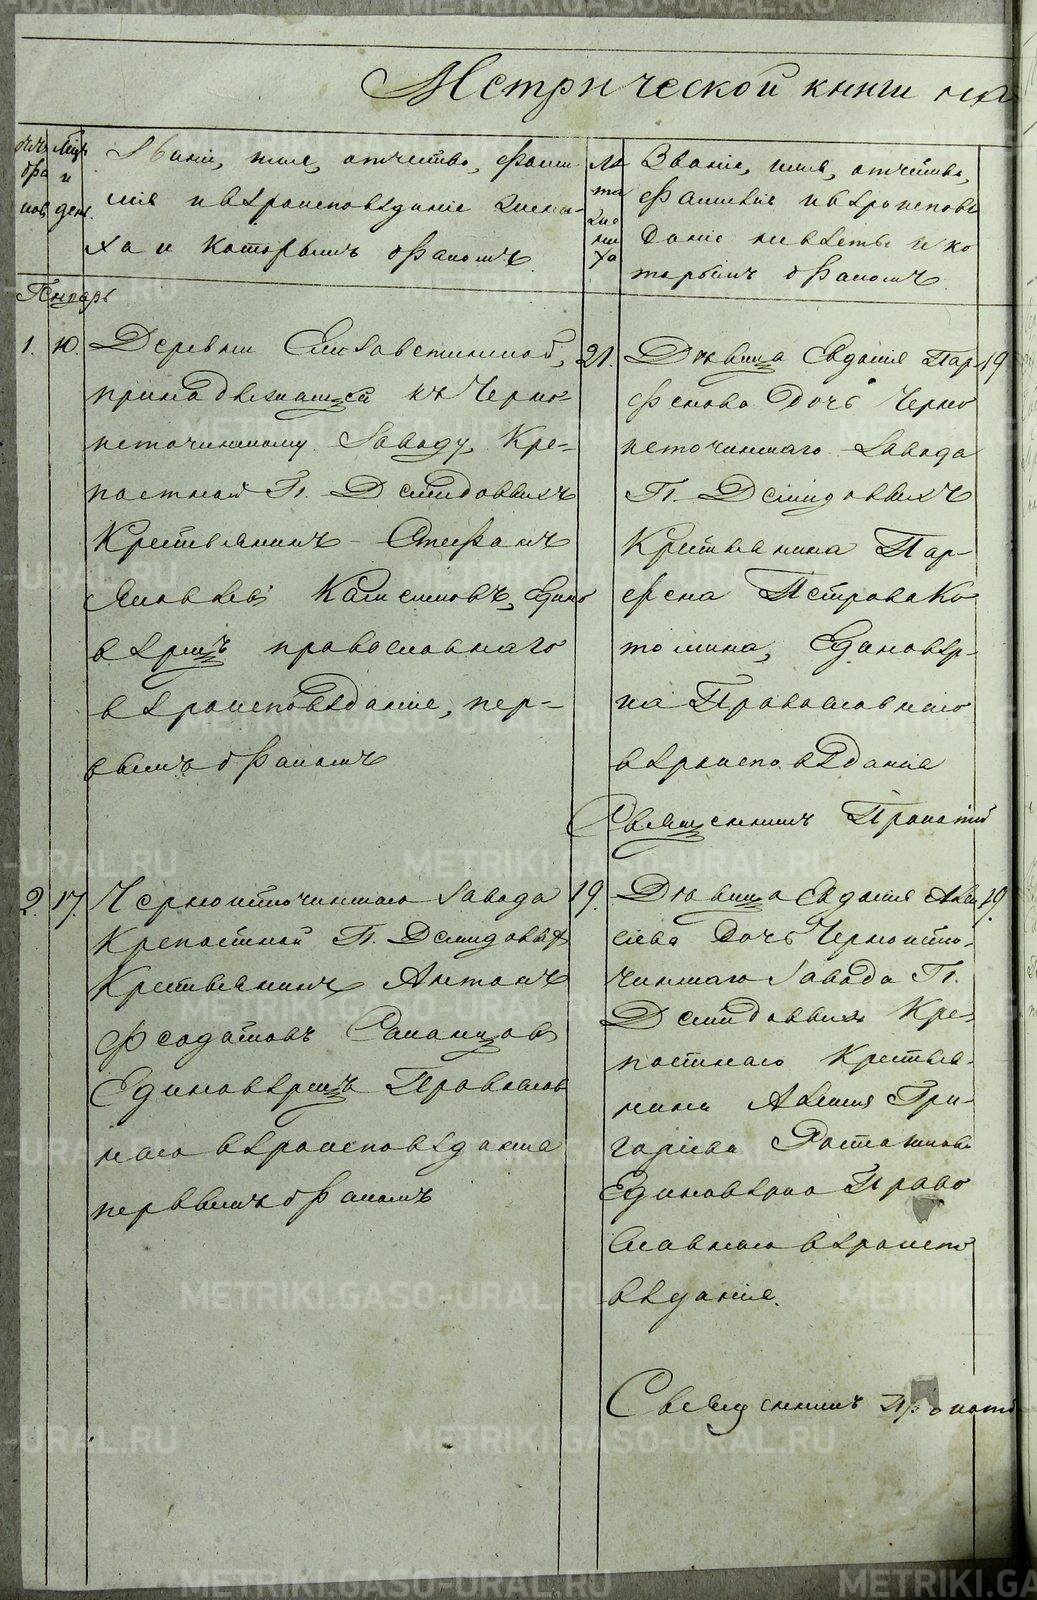 Метрической книги на
счетъ браковъ
Мѣцъ и день
Званіе, имя, отчество, фами
лія и вѣроисповѣданіе жени
ха и которымъ бракомъ
Лѣта жениха
Званіе, имя, отчество,
фамилія и вѣроиспове
даніе невѣсты и ко
торымъ бракомъ
Январь
1. 10. Деревни Елисаветинской,
принадлежащей къ Черно-
источинскому Заводу Кре-
постной Г. Демидовыхъ
Крестьянинъ Стефанъ
Яковлевъ Каменновъ, Едино
вѣрецъ православнаго
вѣроисповѣданія, пер-
вымъ бракомъ
21.
Дѣвица Евдокія Пар 19
фенова дочь Черно
источинскаго Завода
Г. Демидовыхъ
Крестьянина Пар-
фена Петрова Ко
томина, Единовѣр-
ка Православнаго
вѣроисповѣданія
Священникъ
2. 17. Черноисточинскаго Завода
Крепостной Г. Демидовыхъ
Крестьянинъ Антонъ
Федотовъ
Единовѣрецъ Православ
наго вѣроисповѣданія
первымъ бракомъ
19.
Дѣвица Евдокія Алек 19
сіева дочь Черноисто-
чинскаго Завода Г.
Демидовыхъ Кре-
постнаго Крестья-
нина Алексія Гри-
горіева
Единовѣрка Право
славнаго вѣроиспо
вѣданія.
Священникъ
METRIKI.GASO-URAL.RU